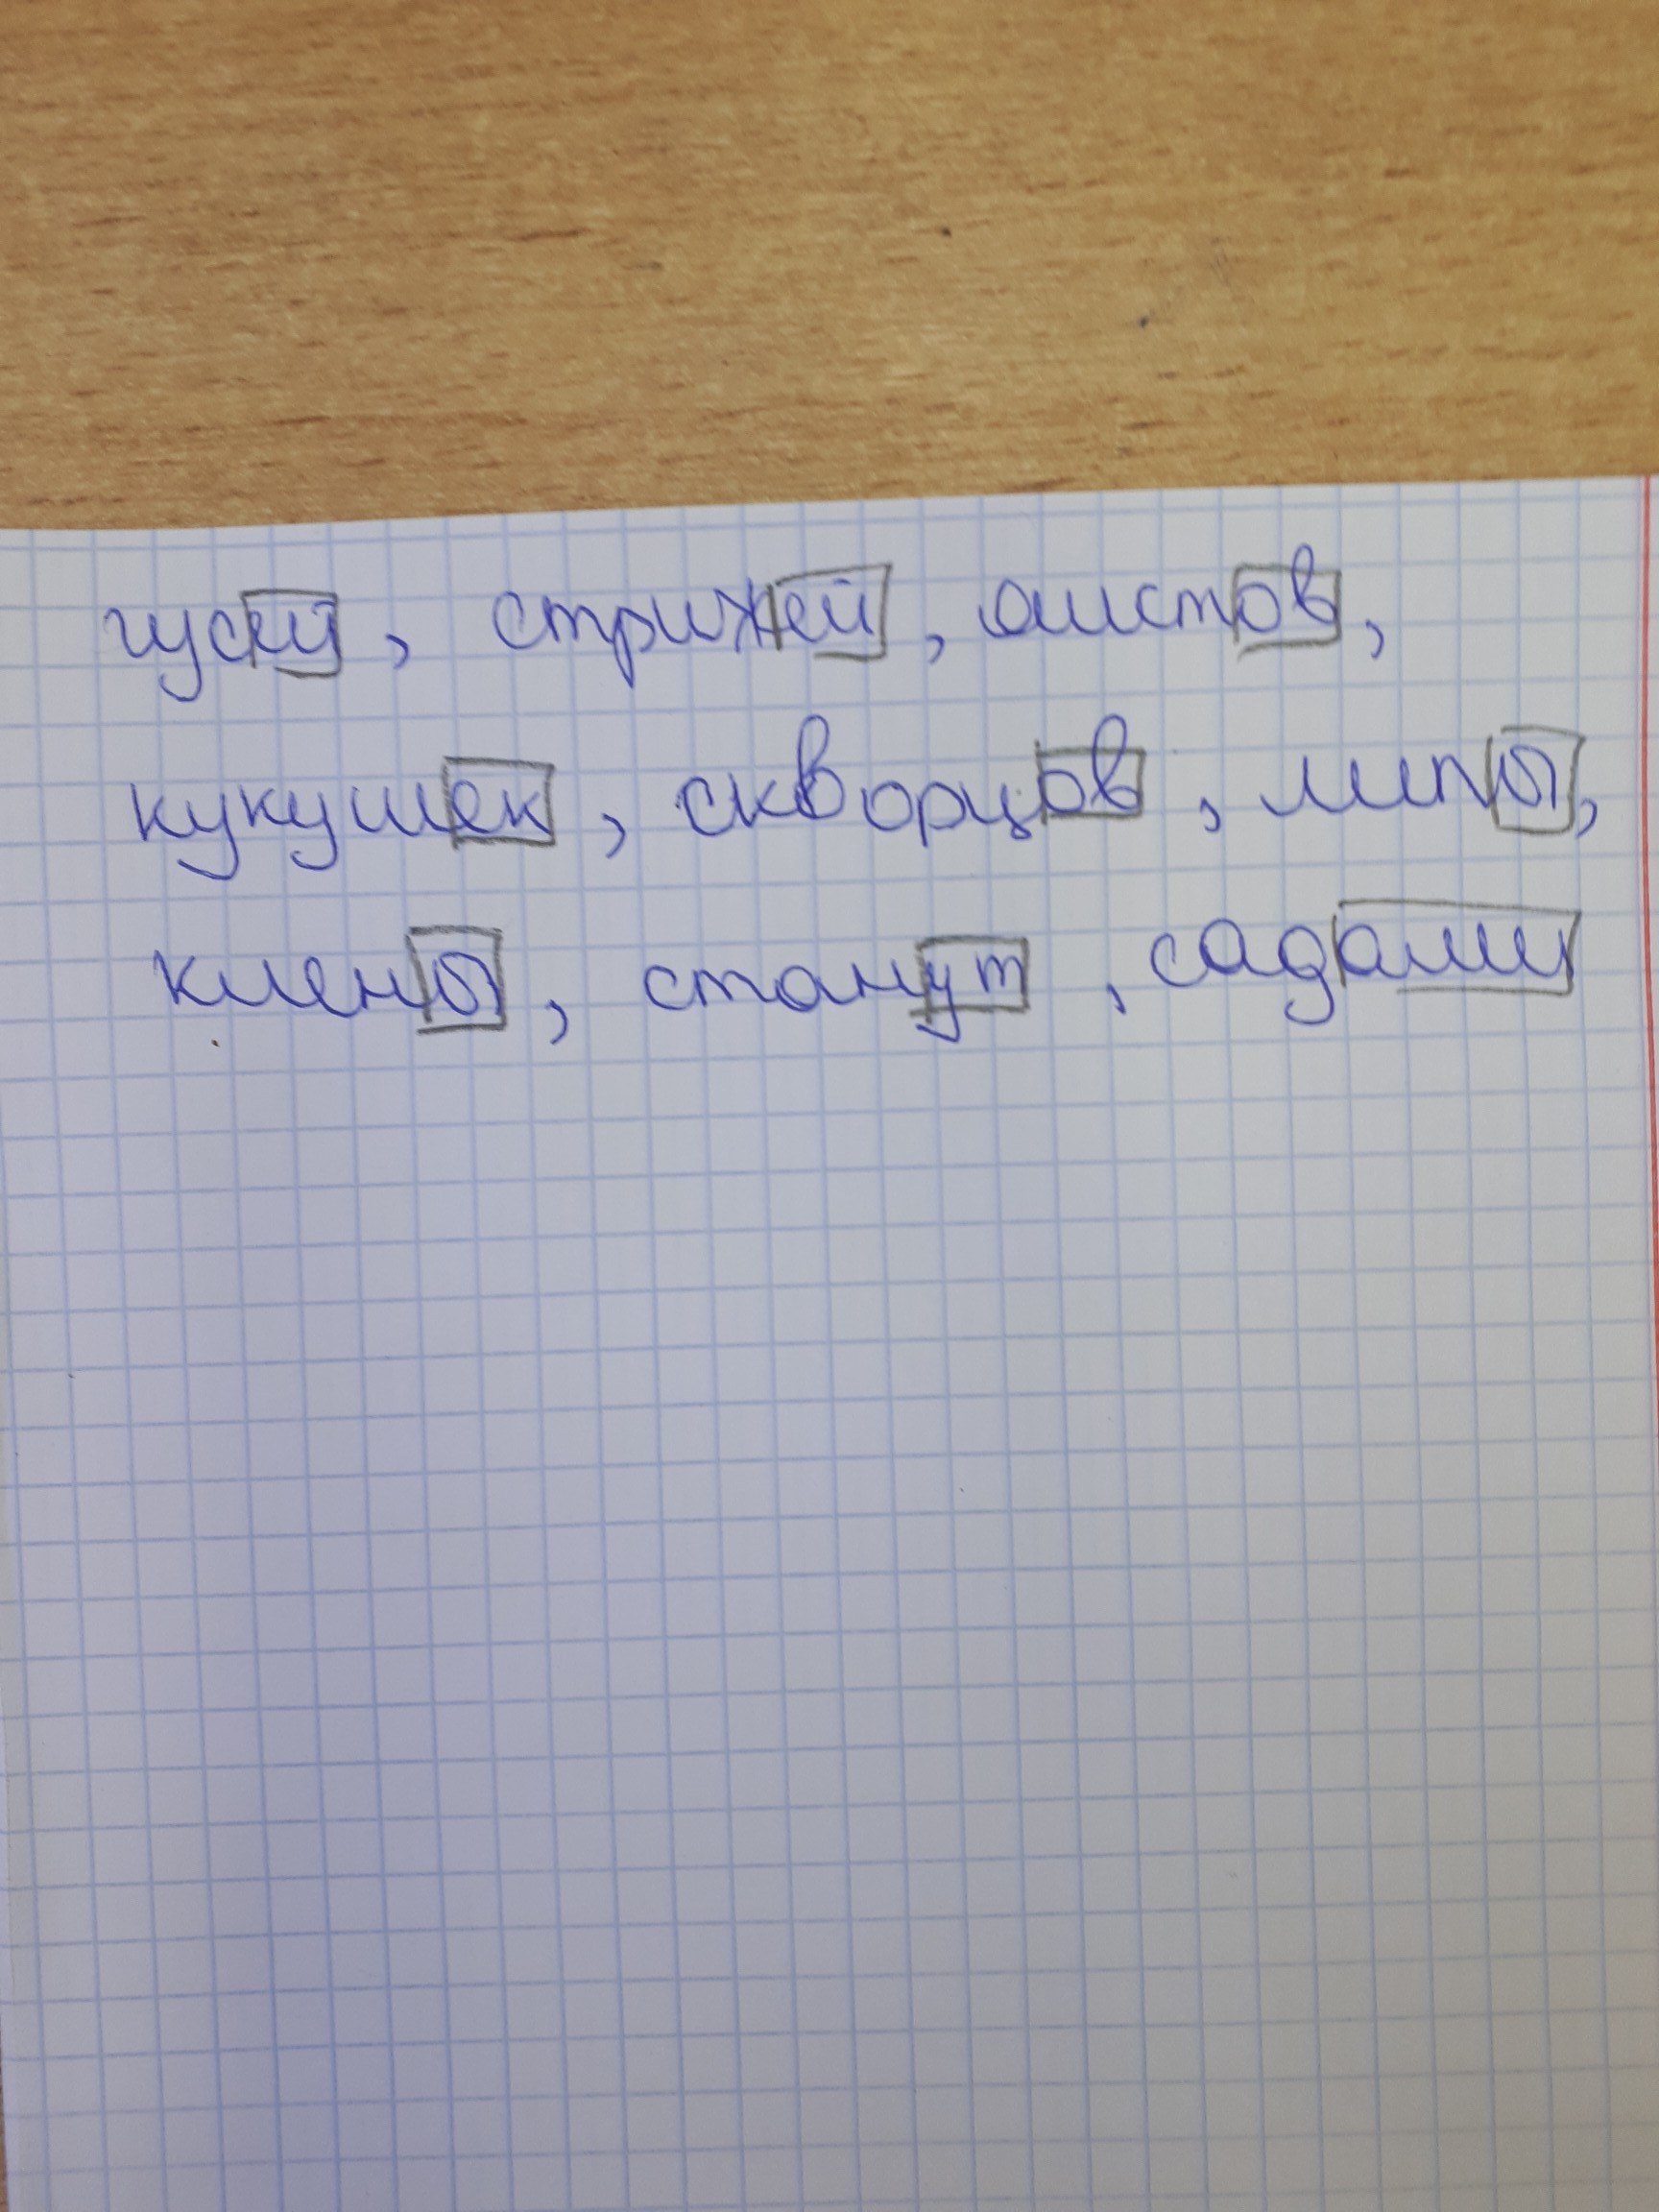 гусей, стрижей, аистов,
кукушек, скворцов, липы,
клены, станут, садами